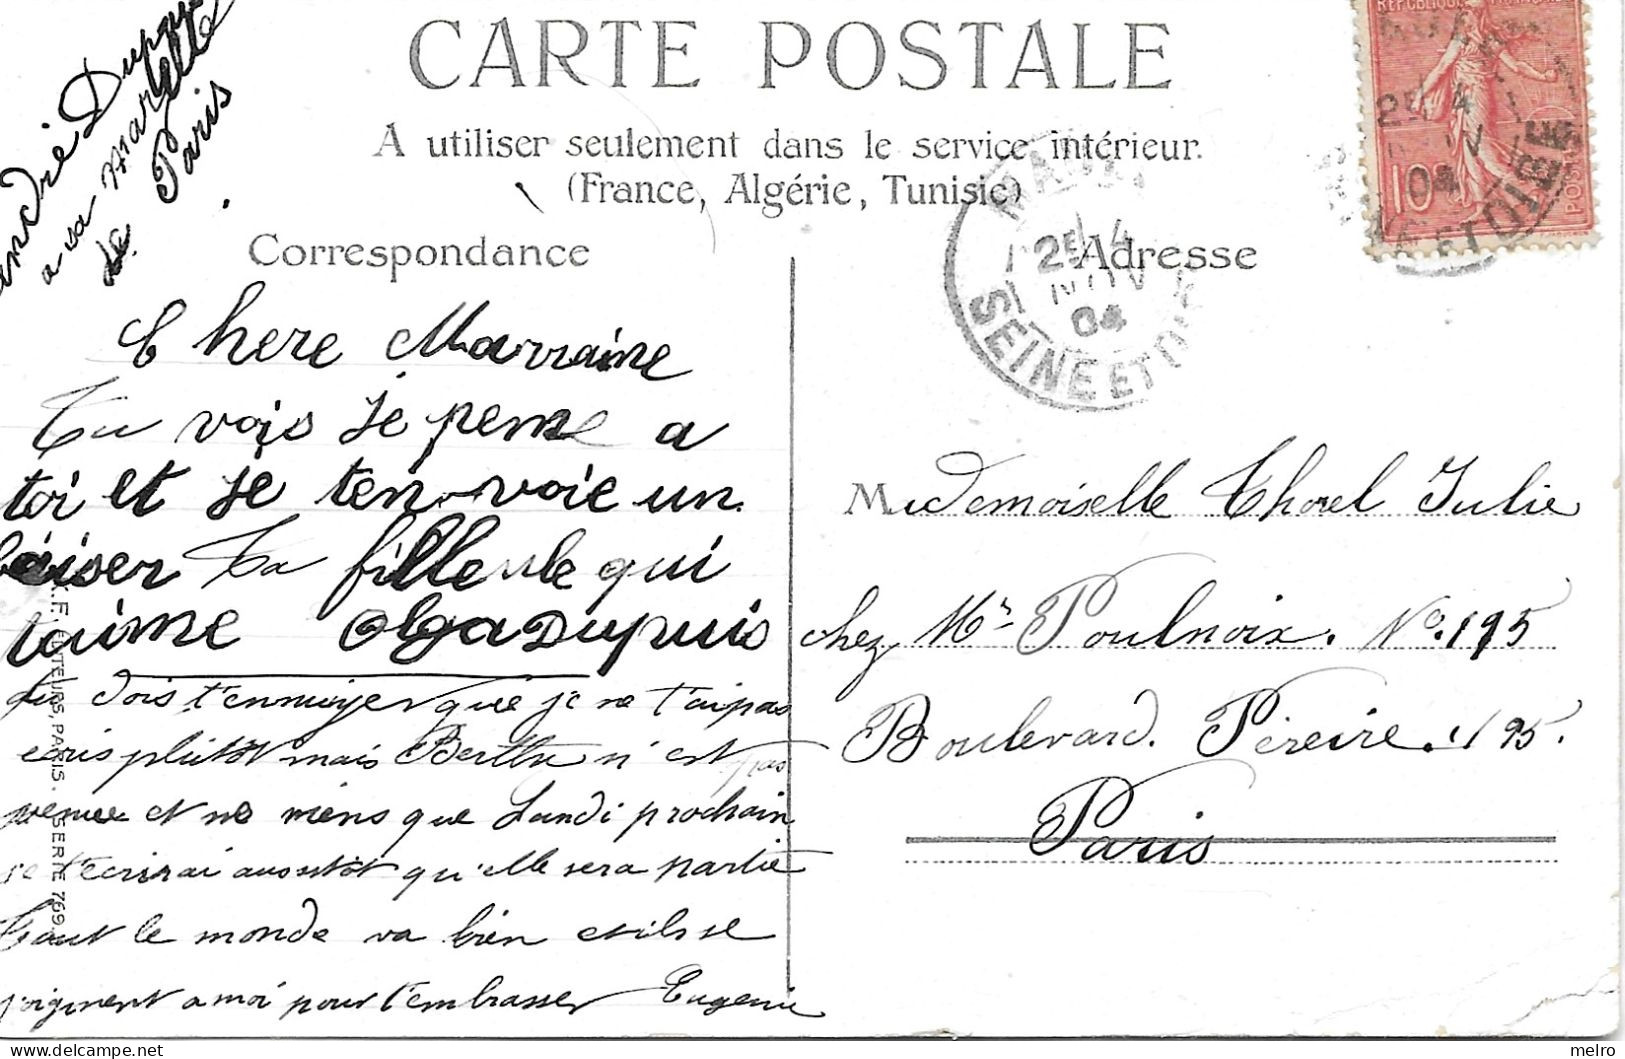 CARTE POSTALE
A utiliser seulement dans le service intérieur.
(France, Algérie, Tunisie)
Correspondance
Adresse
andré Dupuis
a sa
de Paris
Chere Marraine
Tu vois je pense a
toi et je ten-voie un
baiser Ta filleule qui
taime Olga Dupuis
tu dois t'ennuyer que je ne t'ai pas
ecris plutôt mais Berthe n'est pas
venue et ne viens que Lundi prochain
je t'ecrirai aussitôt qu'elle sera partie
Tout le monde va bien et ils se
joignent a moi pour t'embrasser Eugenie
Mademoiselle Thorel Julie
chez Mr Poulnoix. No. 195
Boulevard. Péreire. 195.
Paris
25 4
NOV
04
SEINE ET OISE
REPUBLIQUE FRANÇAISE
10
POSTES
25 4
04
ET OISE
K.F. EDITEURS, PARIS. SERIE 769
delcampe.net
melro